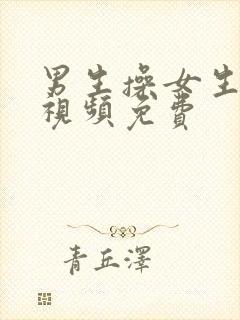 男生操女生
視頻免費
青丘澤